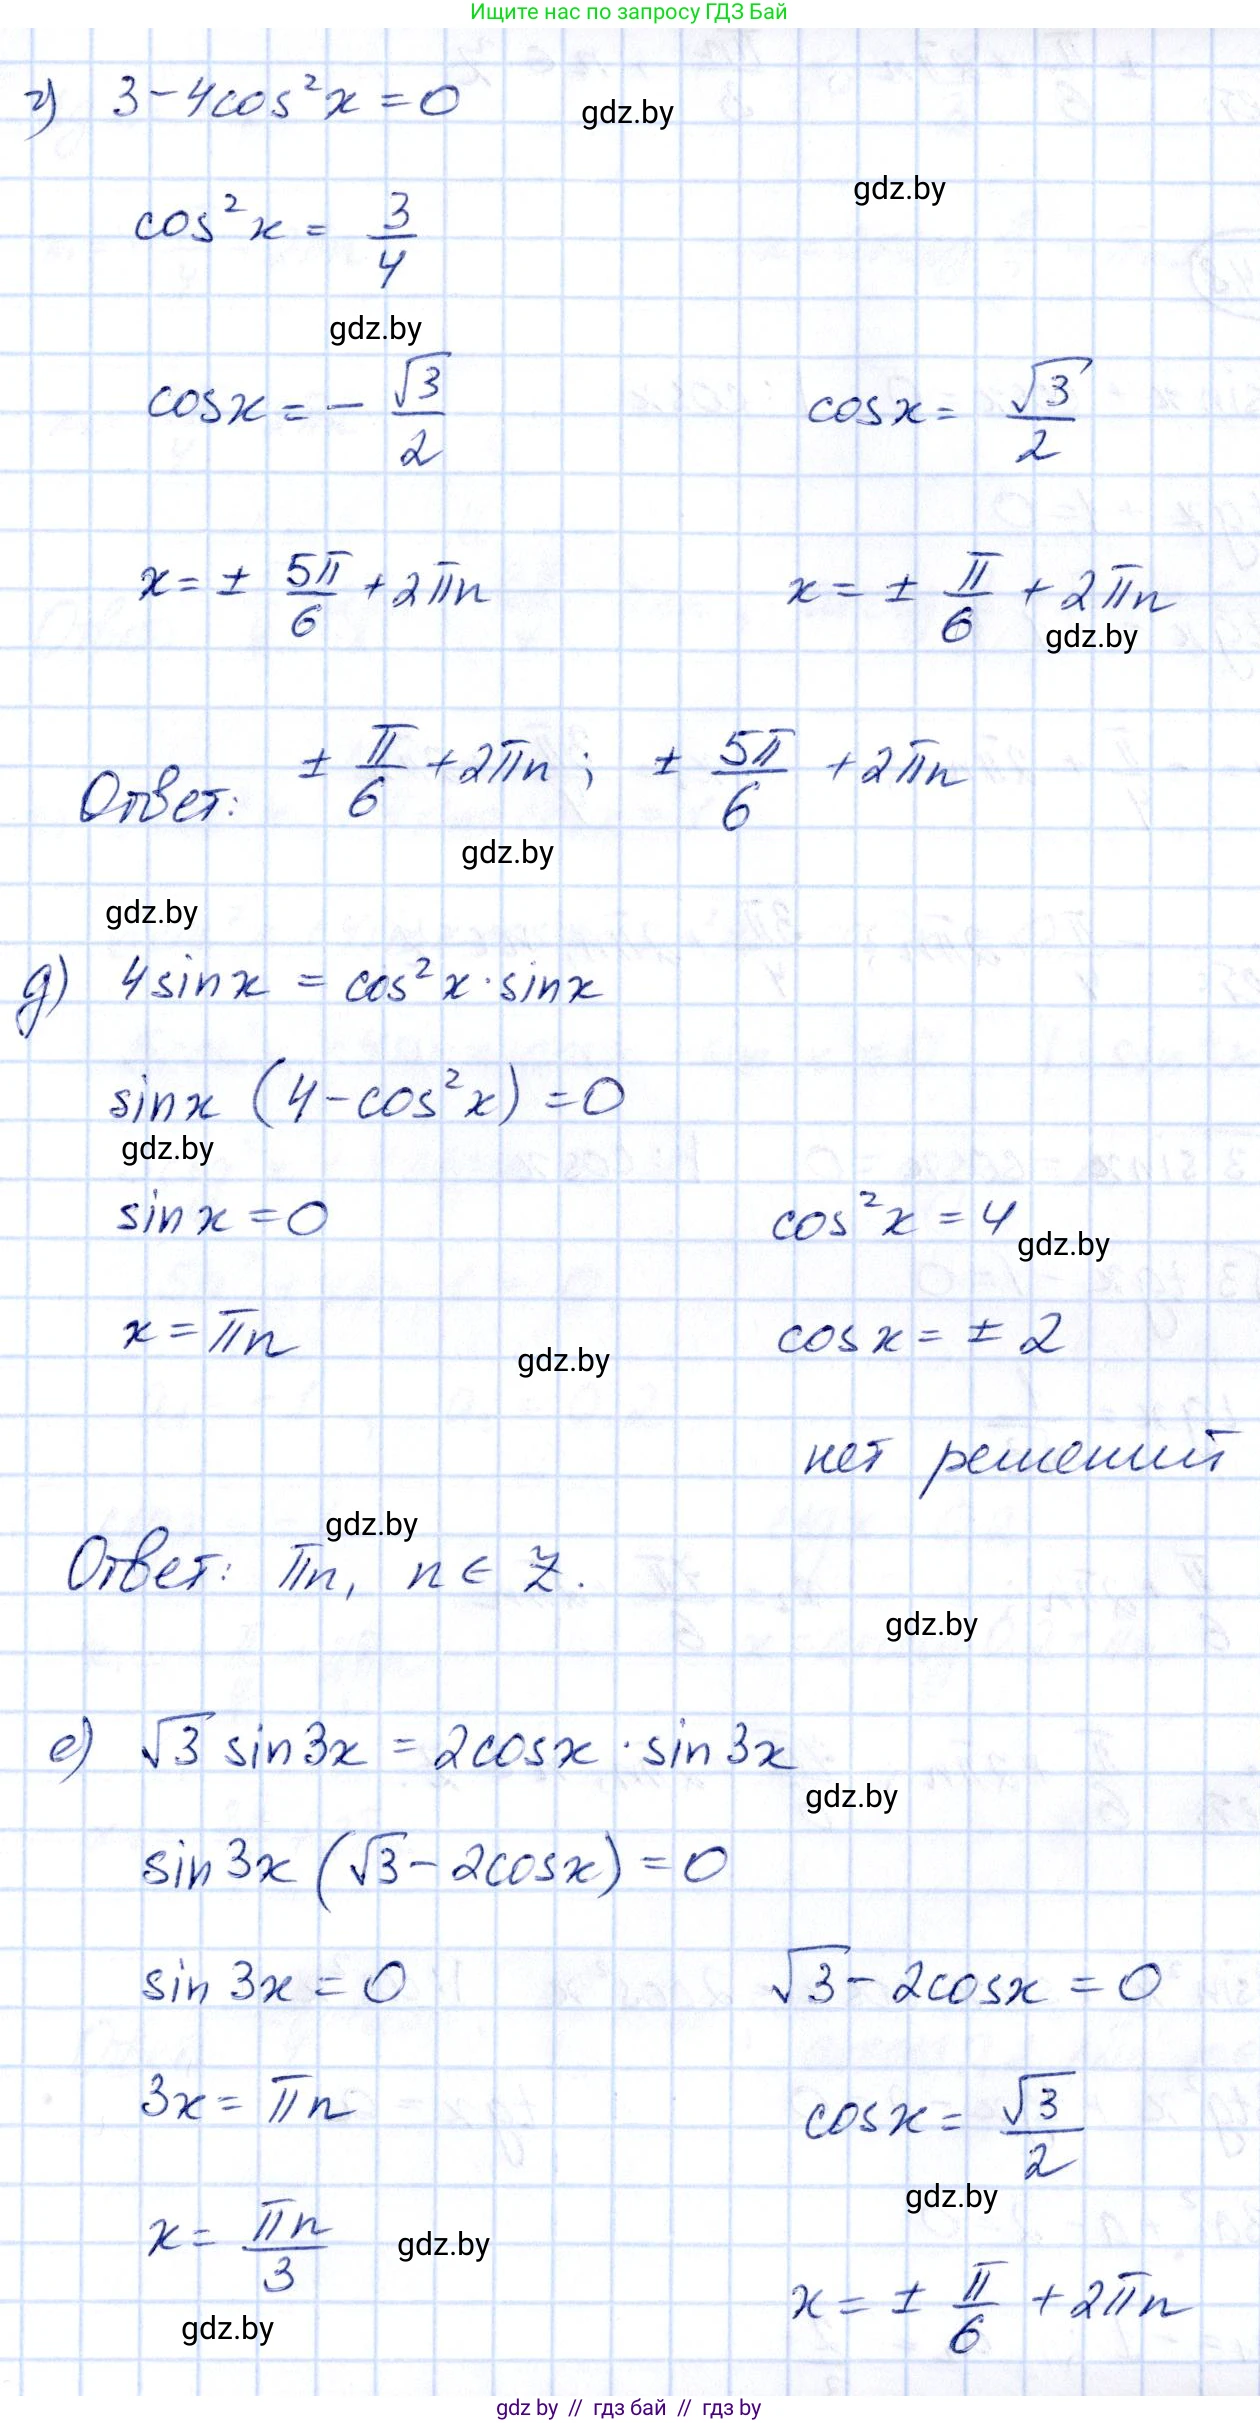 Ищите нас по запросу ГДЗ Бай
г) 3-4cos²x=0
gdz.by
gdz.by
cos²x = 3/4
gdz.by
cosx = - √3/2 cosx = √3/2
x = ± 5π/6 + 2πn x = ± π/6 + 2πn
gdz.by
Ответ: ± π/6 + 2πn ; ± 5π/6 + 2πn
gdz.by
gdz.by
д) 4sinx = cos²x·sinx
sinx (4-cos²x) = 0
gdz.by
sinx = 0 cos²x = 4
gdz.by
x = πn cosx = ± 2
gdz.by
нет решений
gdz.by
Ответ: πn, n ∈ Z.
gdz.by
е) √3 sin3x = 2cosx · sin3x
gdz.by
sin3x (√3 - 2cosx) = 0
sin3x = 0 √3 - 2cosx = 0
3x = πn cosx = √3/2
gdz.by
x = πn/3 gdz.by
x = ± π/6 + 2πn
gdz.by
gdz by // гдз бай // гдз by